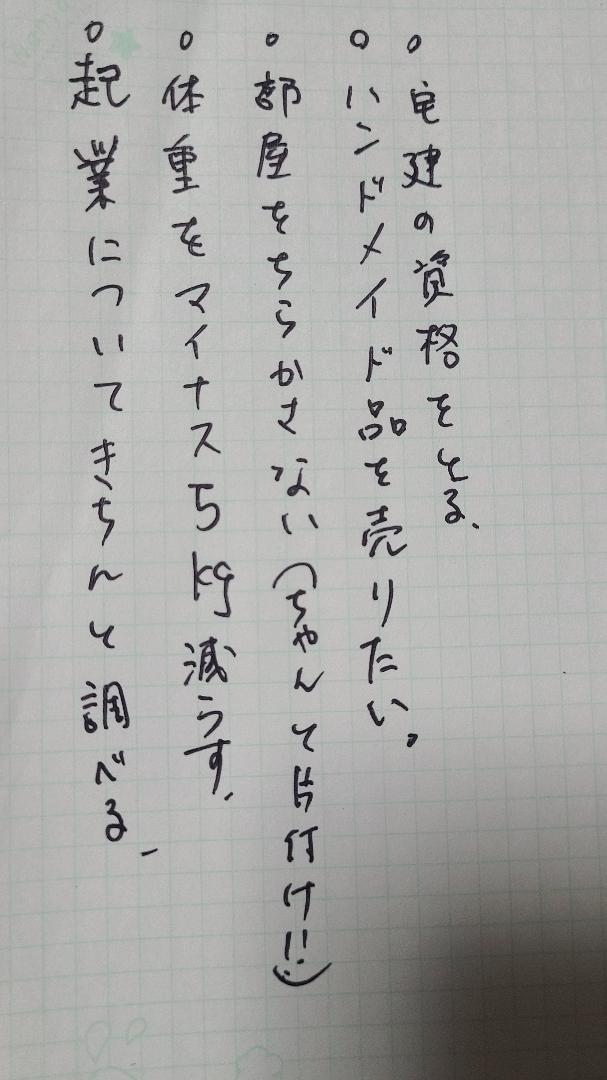 ○宅建の資格をとる、
○ハンドメイド品を売りたい。
○部屋をちらかさない(ちゃんと片付け!!)
○体重をマイナス5kg減らす、
○起業についてきちんと調べる、